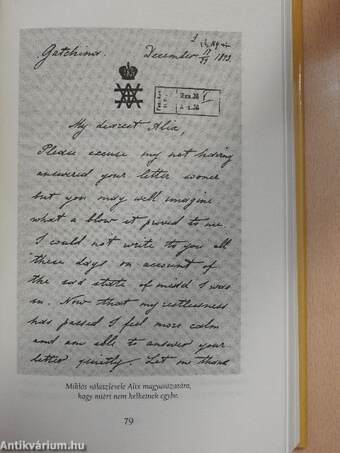 Gatchina. December 17/29 1893.
My dearest Alix,
Please excuse my not having
answered your letter sooner
but you may well imagine
what a blow it proved to me.
I could not write to you all
these days on account of
the sad state of mind I was
in. Now that my restlessness
has passed I feel more calm
and am able to answer your
letter quietly. Let me thank
Miklós válaszlevele Alix magyarázatára,
hogy miért nem kelhetnek egybe.
79
Antikvárium.hu